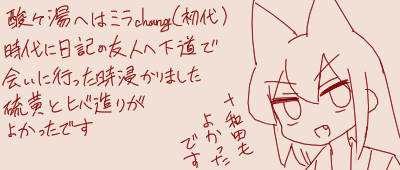 酸ヶ湯へはミラchang(初代)
時代に日記の友人へ下道で
会いに行った時浸かりました
硫黄とヒバ造りが
よかったです
十和田も
よかった
です